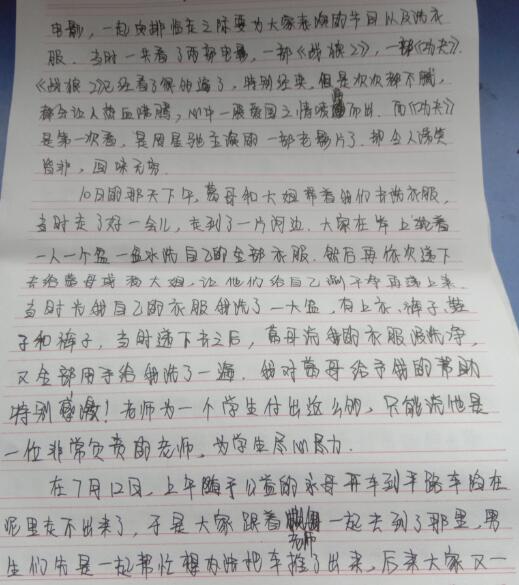 电影，一起安排临走之际要为大家表演的节目以及洗衣
服。当时一共看了两部电影，一部《战狼2》，一部《功夫》.
《战狼2》已经看了很多遍了，特别经典，但是次次都不腻，
都会让人热血沸腾，心中一股爱国之情喷而出。而《功夫》
是第一次看，是周星驰主演的一部老影片了，却令人啼笑
皆非，回味无穷.
10日的那天下午，葛母和大姐带着我们去洗衣服，
当时走了好一会儿，走到了一片河边，大家在岸上
一人一个盆一盆水洗自己的全部衣服。然后再依次递下
去给葛母或和大姐，让他们给自己涮干净再递上来。
当时为我自己的衣服我洗了一大盆，有上衣、裤子、鞋
子和裤子，当时递下去之后，葛母说我的衣服没洗净，
又全部用手给我洗了一遍。我对葛母给予我的帮助
特别感激！老师为一个学生付出这么多的，只能说他是
一位非常负责的老师，为学生尽心尽力.
在7月12日，上午随手公益的永母开车到半路车陷在
泥里走不出来了，于是大家跟着老师一起去到了那里，男
生们先是一起帮忙想办法把车推了出来，后来大家又一